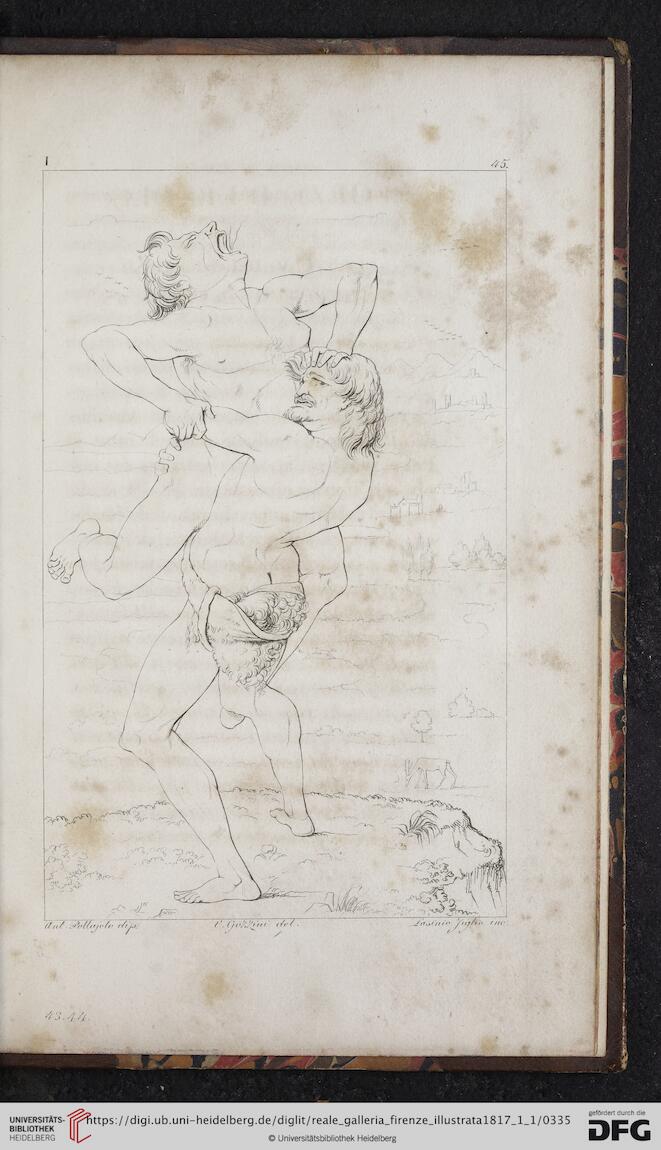 1
45.
Ant. Pollajolo dip.
V. Gozzini del.
Lasinio figlio inc.
43.44.
UNIVERSITÄTS-
BIBLIOTHEK
HEIDELBERG
https://digi.ub.uni-heidelberg.de/diglit/reale_galleria_firenze_illustrata1817_1_1/0335
© Universitätsbibliothek Heidelberg
gefördert durch die
DFG